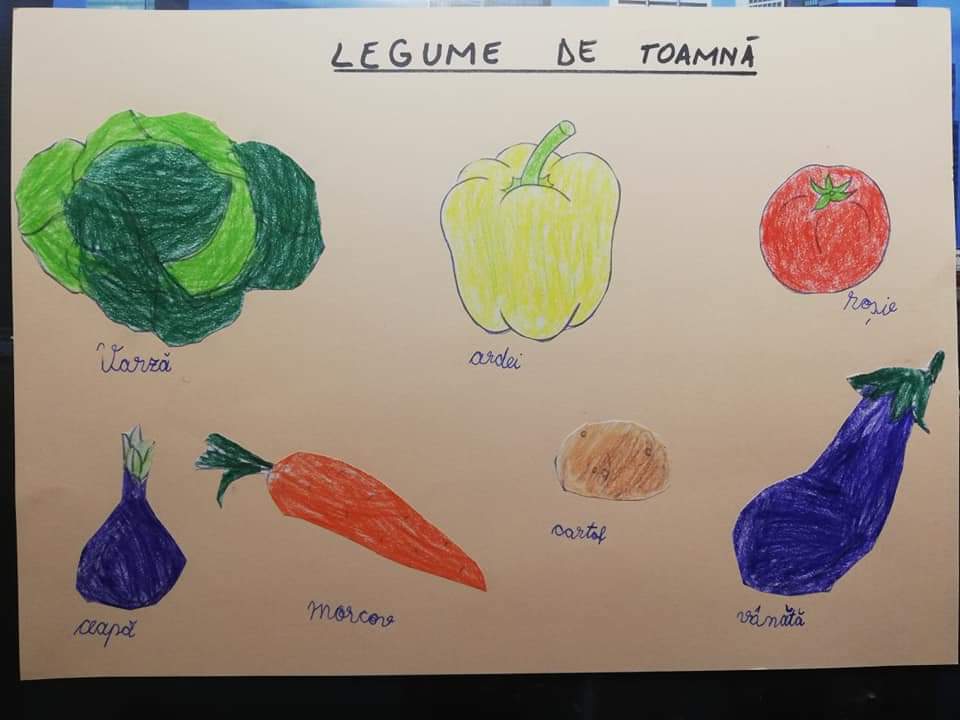 LEGUME DE TOAMNĂ
Varză
ardei
roșie
ceapă
morcov
cartof
vânătă